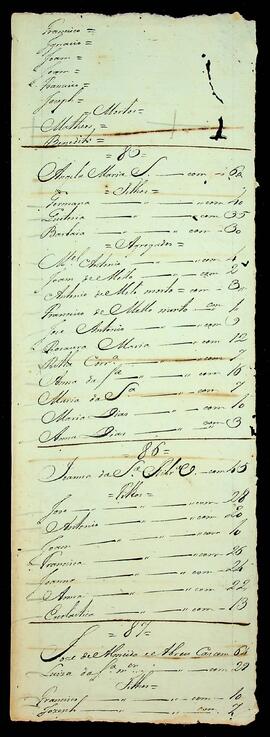 Francisco =
Ignacio =
Joam =
Joam =
Francisco =
Joseph =
= Mortos =
Matheos
Benedito
= 85 =
Maria S. — com — 62
= Filhos =
— com — 40
— " — com — 35
Barbara — " — com — 30
= Agregados =
M.el Antonio — " — com — 4
Joam de Mello — " — com — 2
Antonio de Mello morto = com — 3
Francisco de Mello morto — com — 1
José Antonio — " — com — 9
Maria — " — com — 12
— " — com — 7
Anna da S.a — " — com — 16
Maria da S.a — " — com — 7
Maria Dias — " — com — 10
Anna Dias — " — com — 3
= 86 =
Joanna da S.a — com — 65
= Filhos =
José — " — com — 28
Antonio — " — com — 20
Joam — " — com — 10
Francisca — " — com — 26
Joanna — " — com — 24
Anna — " — com — 22
Escolastica — " — com — 13
= 87 =
José de Almeida e Abreu com 64
Luiza da S.a m.er — " — com — 29
= Filhos =
Francisco — " — com — 10
— " — com — 7